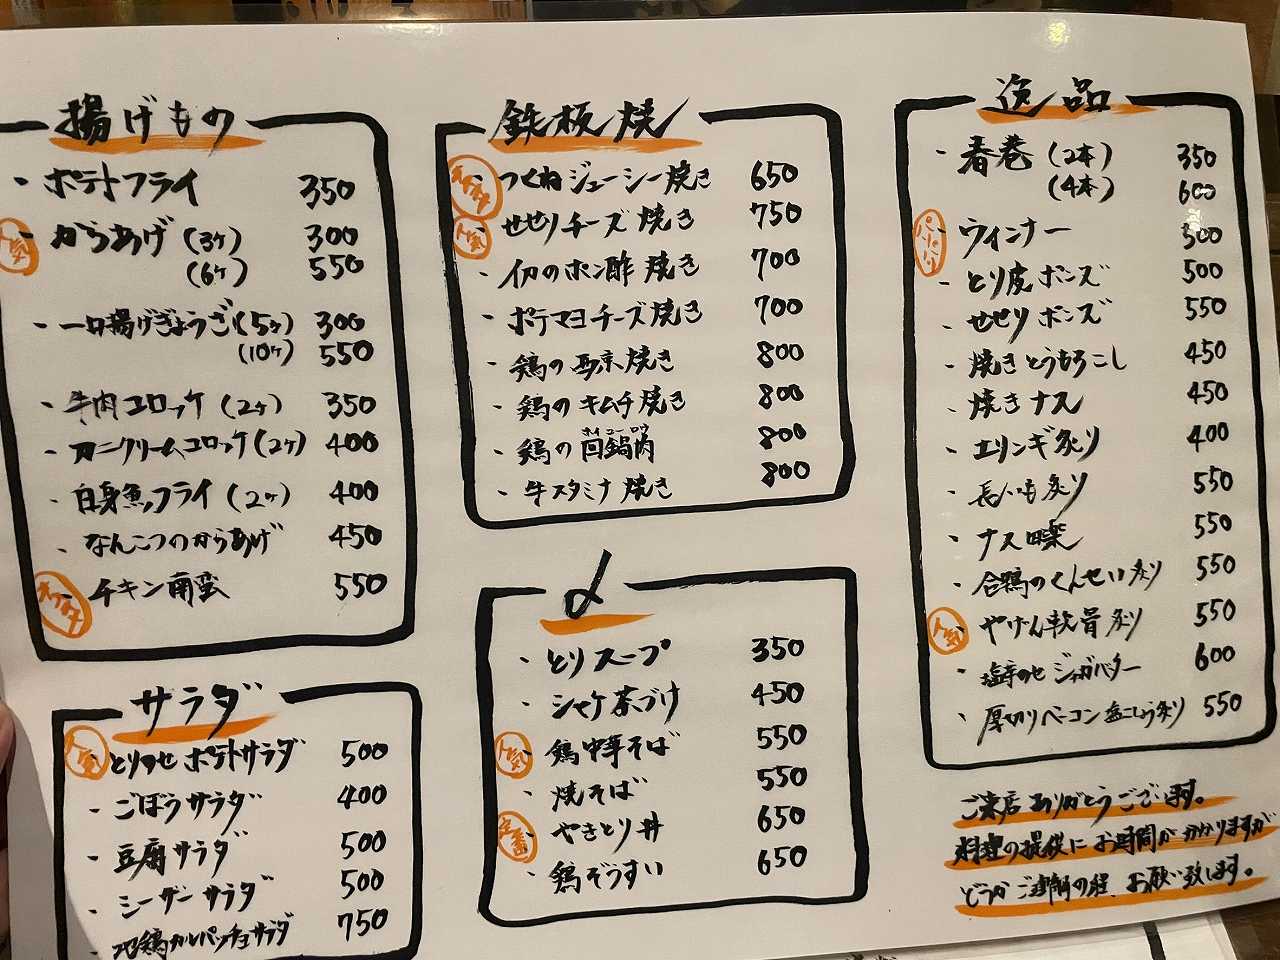 揚げもの
・ポテトフライ 350
人気 からあげ (3ヶ) 300
(6ヶ) 550
・一口揚げぎょうざ (5ヶ) 300
(10ヶ) 550
・牛肉コロッケ (2ヶ) 350
・カニクリームコロッケ (2ヶ) 400
・白身魚フライ (2ヶ) 400
・なんこつのからあげ 450
オススメ チキン南蛮 550
サラダ
人気 とりのせポテトサラダ 500
・ごぼうサラダ 400
・豆腐サラダ 500
・シーザーサラダ 500
・地鶏カルパッチョサラダ 750
鉄板焼
つくねジューシー焼き 650
人気 せせりチーズ焼き 750
・イカのホン酢焼き 700
・ポテマヨチーズ焼き 700
・鶏の西京焼き 800
・鶏のキムチ焼き 800
ホイコーロウ
・鶏の回鍋肉 800
・牛スタミナ焼き 800
〆
・とりスープ 350
・シャケ茶づけ 450
人気 鶏中華そば 550
・焼そば 550
定番 やきとり丼 650
・鶏ぞうすい 650
逸品
・春巻 (2本) 350
(4本) 600
パリパリ ウィンナー 500
・とり皮ポンズ 500
・せせりポンズ 550
・焼きとうもろこし 450
・焼きナス 450
・エリンギ炙り 400
・長いも炙り 550
・ナス田楽 550
・合鴨のくんせい炙り 550
人気 やげん軟骨炙り 550
・塩辛のせジャガバター 600
・厚切りベーコン塩こしょう炙り 550
ご来店ありがとうございます。
料理の提供にお時間がかかりますが
どうかご理解の程、お願い致します。